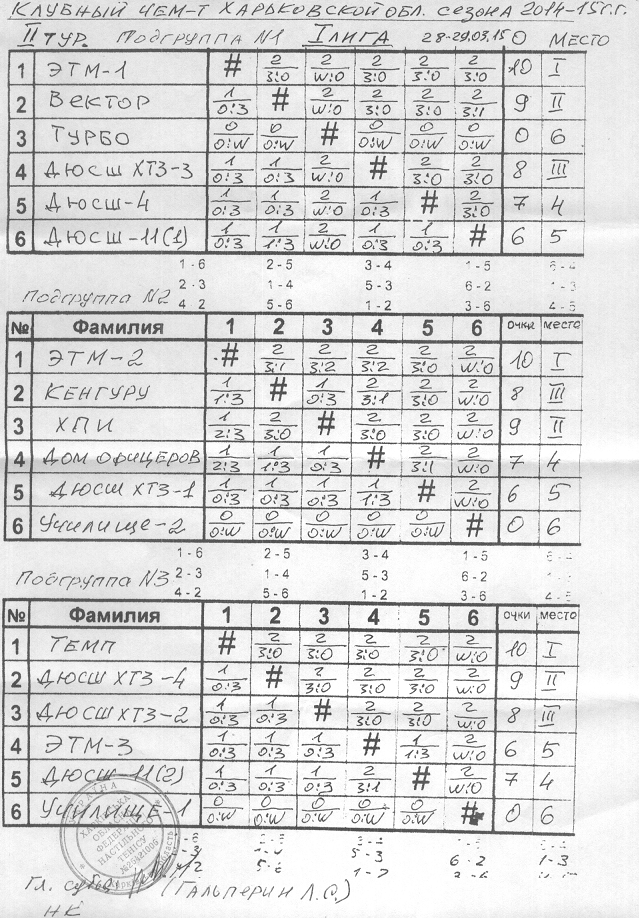 КЛУБНЫЙ ЧЕМ-Т ХАРЬКОВСКОЙ ОБЛ. сезона 2014-15г.г.
II ТУР. Подгруппа N1 I лига 28-29.03.15 О МЕСТО
1 ЭТМ-1 # 2 3:0 2 W:0 2 3:0 2 3:0 2 3:0 10 I
2 Вектор 1 0:3 # 2 W:0 2 3:0 2 3:0 2 3:1 9 II
3 ТУРБО 0 0:W 0 0:W # 0 0:W 0 0:W 0 0:W 0 6
4 ДЮСШ ХТЗ-3 1 0:3 1 0:3 2 W:0 # 2 3:0 2 3:0 8 III
5 Дюсш-4 1 0:3 1 0:3 2 W:0 1 0:3 # 2 3:0 7 4
6 Дюсш-11(1) 1 0:3 1 1:3 2 W:0 1 0:3 1 0:3 # 6 5
1 - 6 2 - 5 3 - 4 1 - 5 6 - 4
2 - 3 1 - 4 5 - 3 6 - 2 1 - 3
Подгруппа N2 4 2 5 - 6 1 - 2 3 - 6 4 - 5
№ Фамилия 1 2 3 4 5 6 очки место
1 ЭТМ-2 # 2 3:1 2 3:2 2 3:2 2 3:0 2 W:0 10 I
2 КЕНГУРУ 1 1:3 # 1 0:3 2 3:1 2 3:0 2 W:0 8 III
3 ХПИ 1 2:3 2 3:0 # 2 3:0 2 3:0 2 W:0 9 II
4 ДОМ ОФИЦЕРОВ 1 2:3 1 1:3 1 0:3 # 2 3:1 2 W:0 7 4
5 ДЮСШ ХТЗ-1 1 0:3 1 0:3 1 0:3 1 1:3 # 2 W:0 6 5
6 Училище-2 0 0:W 0 0:W 0 0:W 0 0:W 0 0:W # 0 6
1 - 6 2 - 5 3 - 4 1 - 5
Подгруппа N3 2 - 3 1 - 4 5 - 3 6 - 2
4 - 2 5 - 6 1 - 2 3 - 6 4 - 5
№ Фамилия 1 2 3 4 5 6 очки место
1 ТЕМП # 2 3:0 2 3:0 2 3:0 2 3:0 2 W:0 10 I
2 ДЮСШ ХТЗ-4 1 0:3 # 2 3:0 2 3:0 2 3:0 2 W:0 9 II
3 ДЮСШ ХТЗ-2 1 0:3 1 0:3 # 2 3:0 2 3:0 2 W:0 8 III
4 ЭТМ-3 1 0:3 1 0:3 1 0:3 # 1 1:3 2 W:0 6 5
5 ДЮСШ-11(2) 1 0:3 1 0:3 1 0:3 2 3:1 # 2 W:0 7 4
6 УЧИЛИЩЕ-1 0 0:W 0 0:W 0 0:W 0 0:W 0 0:W # 0 6
5 - 3 6 - 2 1 - 3
Гл. судья (Гальперин Л.С.)
НК